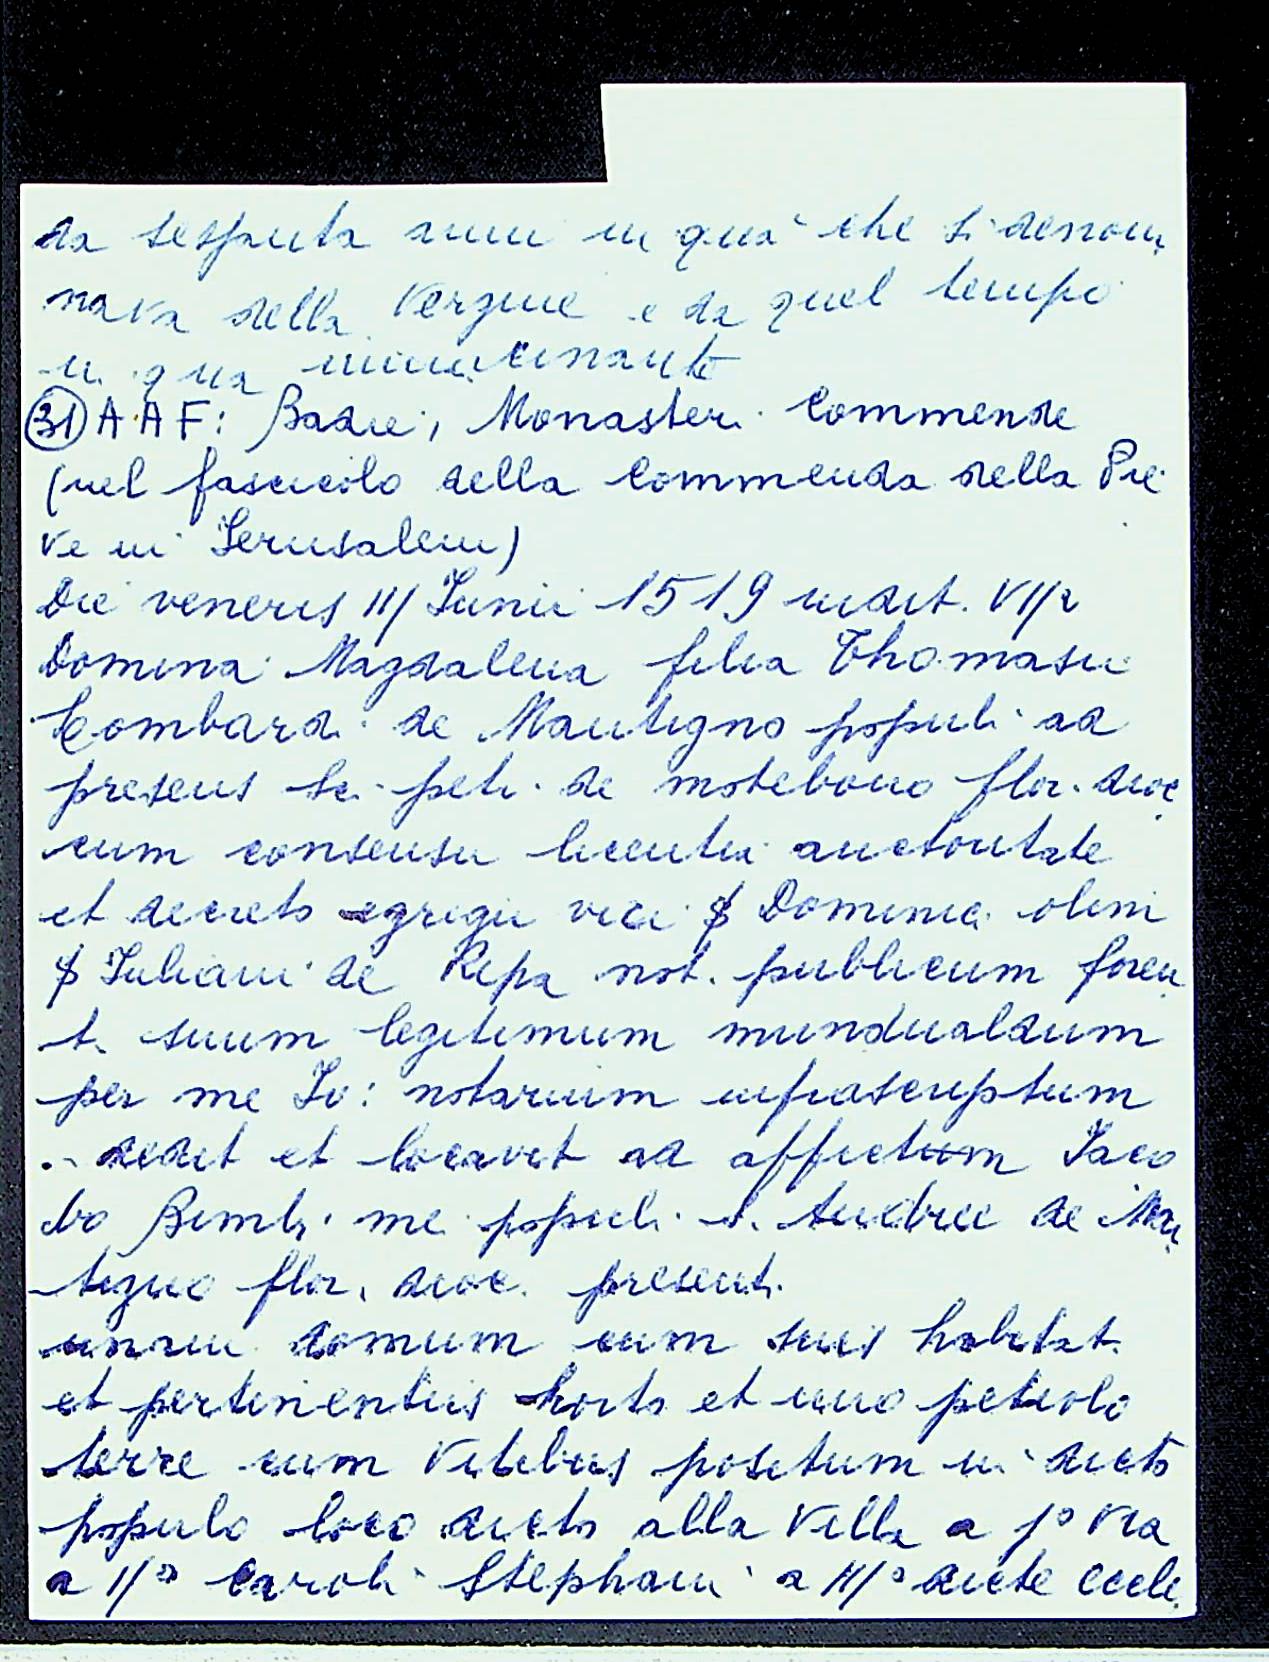 da sessanta anni in quà che si denomi
nava della Vergine e da quel tempo
in qua
(31) A A F: Badie, Monasteri Commende
(nel fascicolo della Commenda della Pie
ve in Jerusalem)
Die veneris III Junii 1519 indit. VIIa
Domina Magdalena filia Thomasii
Lombardi de Mantigno populi ad
presens Sci. petri de motebono flor. dioc
cum consensu licentia auctoritate
et decreto egregii viri § Dominici olim
§ Juliani de Ripa not. publicum floren
t. suum legitimum mundualdum
per me Jo: notarium infrascriptum
.. dedit et locavit ad affictum Jaco
bo Bimbi me populi S. Andree de Man
tigno flor. dioc. present.
unam domum cum suis habitat.
et pertinentiis horto et uno petiolo
terre cum vitibus positum in dicto
populo loco dicto alla Villa a 1° via
a II° Caroli Stephani a III° dicte eccle